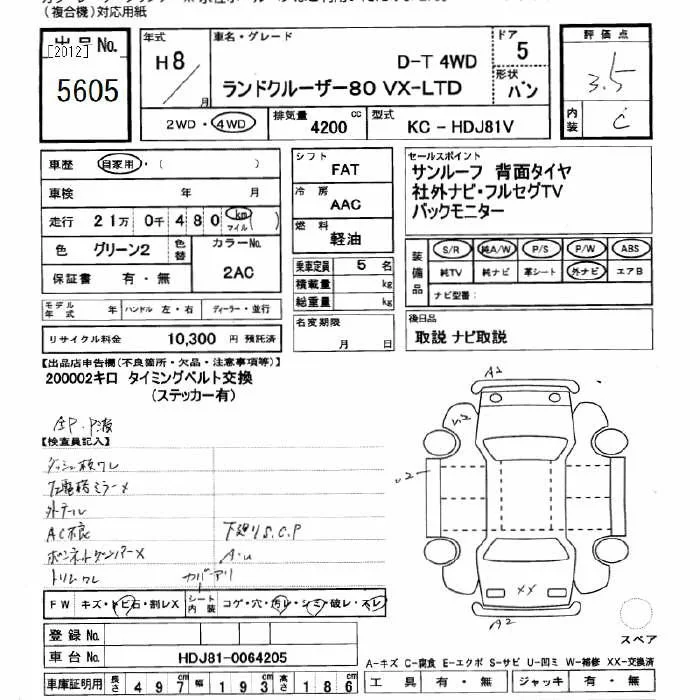 (複合機)対応用紙
出品No.
[2012]
5605
年式 H8 月
車名・グレード
D-T 4WD
ランドクルーザー80 VX-LTD
ドア 5
形状 バン
評価点
3.5
内装 C
2WD・4WD
排気量 4200 cc
型式 KC-HDJ81V
車歴 自家用・( )
車検 年 月
走行 21万 0千 480 km マイル ( )
色 グリーン2 色替 カラーNo. 2AC
保証書 有・無
モデル年式 年 ハンドル 左・右 ディーラー・並行
リサイクル料金 10,300 円 預託済
シフト FAT
冷房 AAC
燃料 軽油
乗車定員 5 名
積載量 kg
総重量 kg
名変期限 月 日
セールスポイント
サンルーフ 背面タイヤ
社外ナビ・フルセグTV
バックモニター
装備品 S/R 純A/W P/S P/W ABS
純TV 純ナビ 革シート 外ナビ エアB
ナビ型番:
後日品
取説 ナビ取説
【出品店申告欄(不良箇所・欠品・注意事項等)】
200002キロ タイミングベルト交換
(ステッカー有)
【検査員記入】
左電格ミラーメ
AC不良
下廻りS.C.P
A.u
トリムワレ
カバーアリ
A2
u2
u2
XX
A2
FW キズ・トビ石・割レX シート内装 コゲ・穴・汚レ・シミ・破レ・スレ
登録No.
車台No. HDJ81-0064205
車庫証明用 長さ 497 cm 幅 193 cm 高さ 186 cm
スペア
A-キズ C-腐食 E-エクボ S-サビ U-凹ミ W-補修 XX-交換済
工具 有・無 ジャッキ 有・無